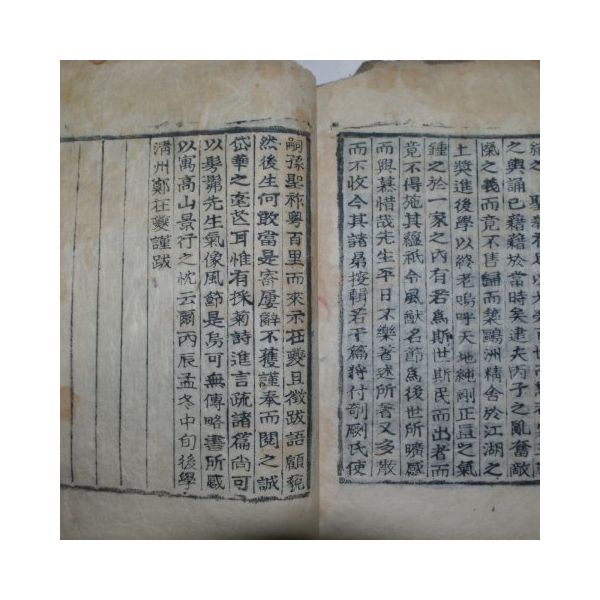 之輿誦已藉藉於當時矣逮夫丙子之亂奮敵
愾之義而竟不售歸而築鷗洲精舍於江湖之
上奬進後學以終老嗚呼天地純剛正直之氣
鍾之於一家之內有若爲斯世斯民而出者而
竟不得施其經令風猷名節爲後世所曠感
而興慕惜哉先生平日不樂著述所著又多散
而不收今其諸孱按輯若干篇將付剞劂氏使
嗣孫聖祚粤百里而來示在夔且徵跋語顧
然後生何敢當是寄屢辭不獲謹奉而閱之誠
岱華之毫芒耳惟有採菊詩進言疏諸篇尙可
以髣髴先生氣像風節是烏可無傳略書所感
以寓高山景行之忱云爾丙辰孟冬中旬後學
淸州鄭在夔謹跋